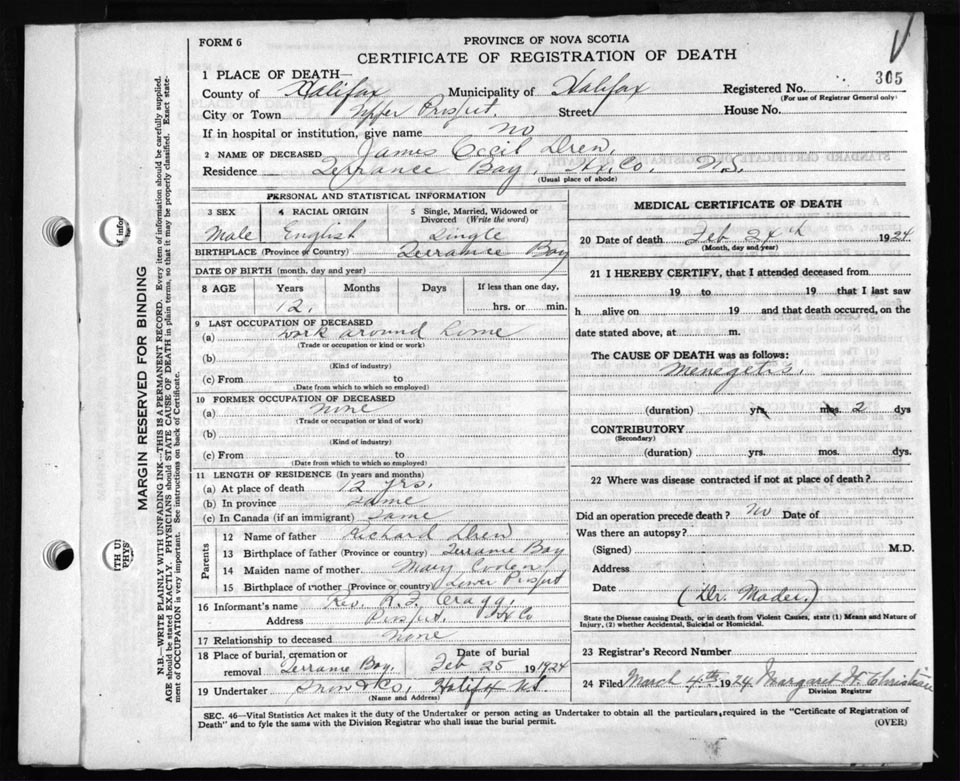 FORM 6
PROVINCE OF NOVA SCOTIA
CERTIFICATE OF REGISTRATION OF DEATH
305
1 PLACE OF DEATH—
County of Halifax Municipality of Halifax Registered No.
(For use of Registrar General only)
City or Town Upper Prospect. Street House No.
If in hospital or institution, give name no
2 NAME OF DECEASED James Cecil Drew,
Residence Terrance Bay, Hx Co. N.S.
(Usual place of abode)
PERSONAL AND STATISTICAL INFORMATION
3 SEX 4 RACIAL ORIGIN 5 Single, Married, Widowed or Divorced (Write the word)
Male English Single
BIRTHPLACE (Province or Country) Terrance Bay
DATE OF BIRTH (month, day and year)
8 AGE Years Months Days If less than one day,
12. hrs. or min.
9 LAST OCCUPATION OF DECEASED
(a) work around home
(Trade or occupation or kind or work)
(b)
(Kind of industry)
(c) From to
(Date from which to which so employed)
10 FORMER OCCUPATION OF DECEASED
(a) none
(Trade or occupation or kind of work)
(b)
(Kind of industry)
(c) From to
(Date from which to which so employed)
11 LENGTH OF RESIDENCE (In years and months)
(a) At place of death 12 yrs.
(b) In province same
(c) In Canada (if an immigrant) same
Parents
12 Name of father Richard Drew
13 Birthplace of father (Province or country) Terrance Bay
14 Maiden name of mother. Mary
15 Birthplace of mother (Province or country) Lower Prospect
16 Informant's name Rev. R. F. Cragg,
Address Prospect, Hx Co
17 Relationship to deceased none
18 Place of burial, cremation or removal Terrance Bay. Date of burial Feb 25 1924
19 Undertaker Snow & Co, Halifax N.S.
(Name and Address)
MEDICAL CERTIFICATE OF DEATH
20 Date of death Feb 24th 1924
(Month, day and year)
21 I HEREBY CERTIFY, that I attended deceased from
19 to 19 that I last saw
h alive on 19 and that death occurred, on the
date stated above, at m.
The CAUSE OF DEATH was as follows:
Menegetis.
(duration) yrs. mos. 2 dys
CONTRIBUTORY
(Secondary)
(duration) yrs. mos. dys.
22 Where was disease contracted if not at place of death?
Did an operation precede death? No Date of
Was there an autopsy?
(Signed) M.D.
Address
Date (Dr. Mader.)
State the Disease causing Death, or in death from Violent Causes, state (1) Means and Nature of Injury, (2) whether Accidental, Suicidal or Homicidal.
23 Registrar's Record Number
24 Filed March 4th 1924. Margaret W. Christian
Division Registrar
SEC. 46—Vital Statistics Act makes it the duty of the Undertaker or person acting as Undertaker to obtain all the particulars required in the "Certificate of Registration of
Death" and to fyle the same with the Division Registrar who shall issue the burial permit. (OVER)
MARGIN RESERVED FOR BINDING
N.B.—WRITE PLAINLY WITH UNFADING INK—THIS IS A PERMANENT RECORD. Every item of information should be carefully supplied.
AGE should be stated EXACTLY. PHYSICIANS should STATE CAUSE OF DEATH in plain terms, so that it may be properly classified. Exact state-
ment of OCCUPATION is very important. See instructions on back of Certificate.